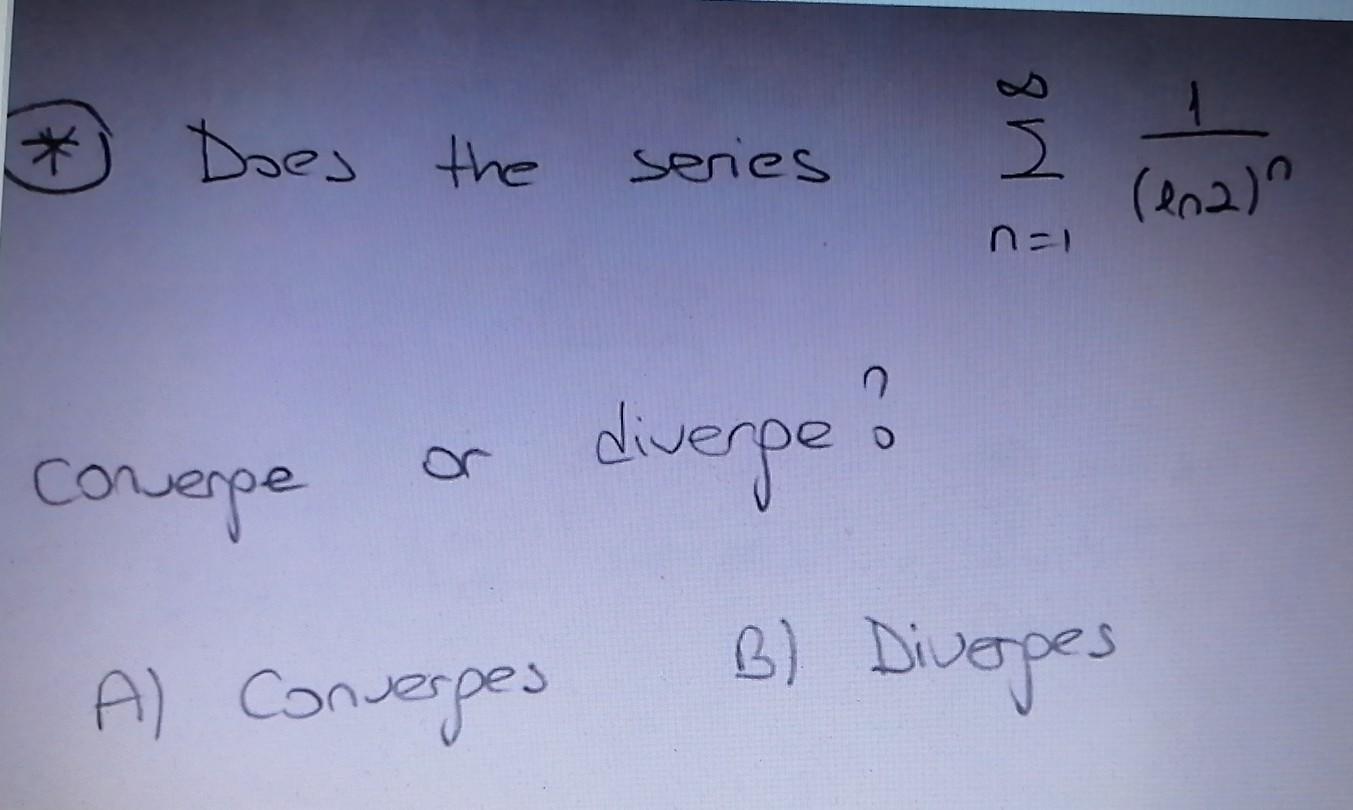 * Does the series ∞ ∑ n=1 1/(ln2)^n
converge or diverge?
A) Converges B) Diverges